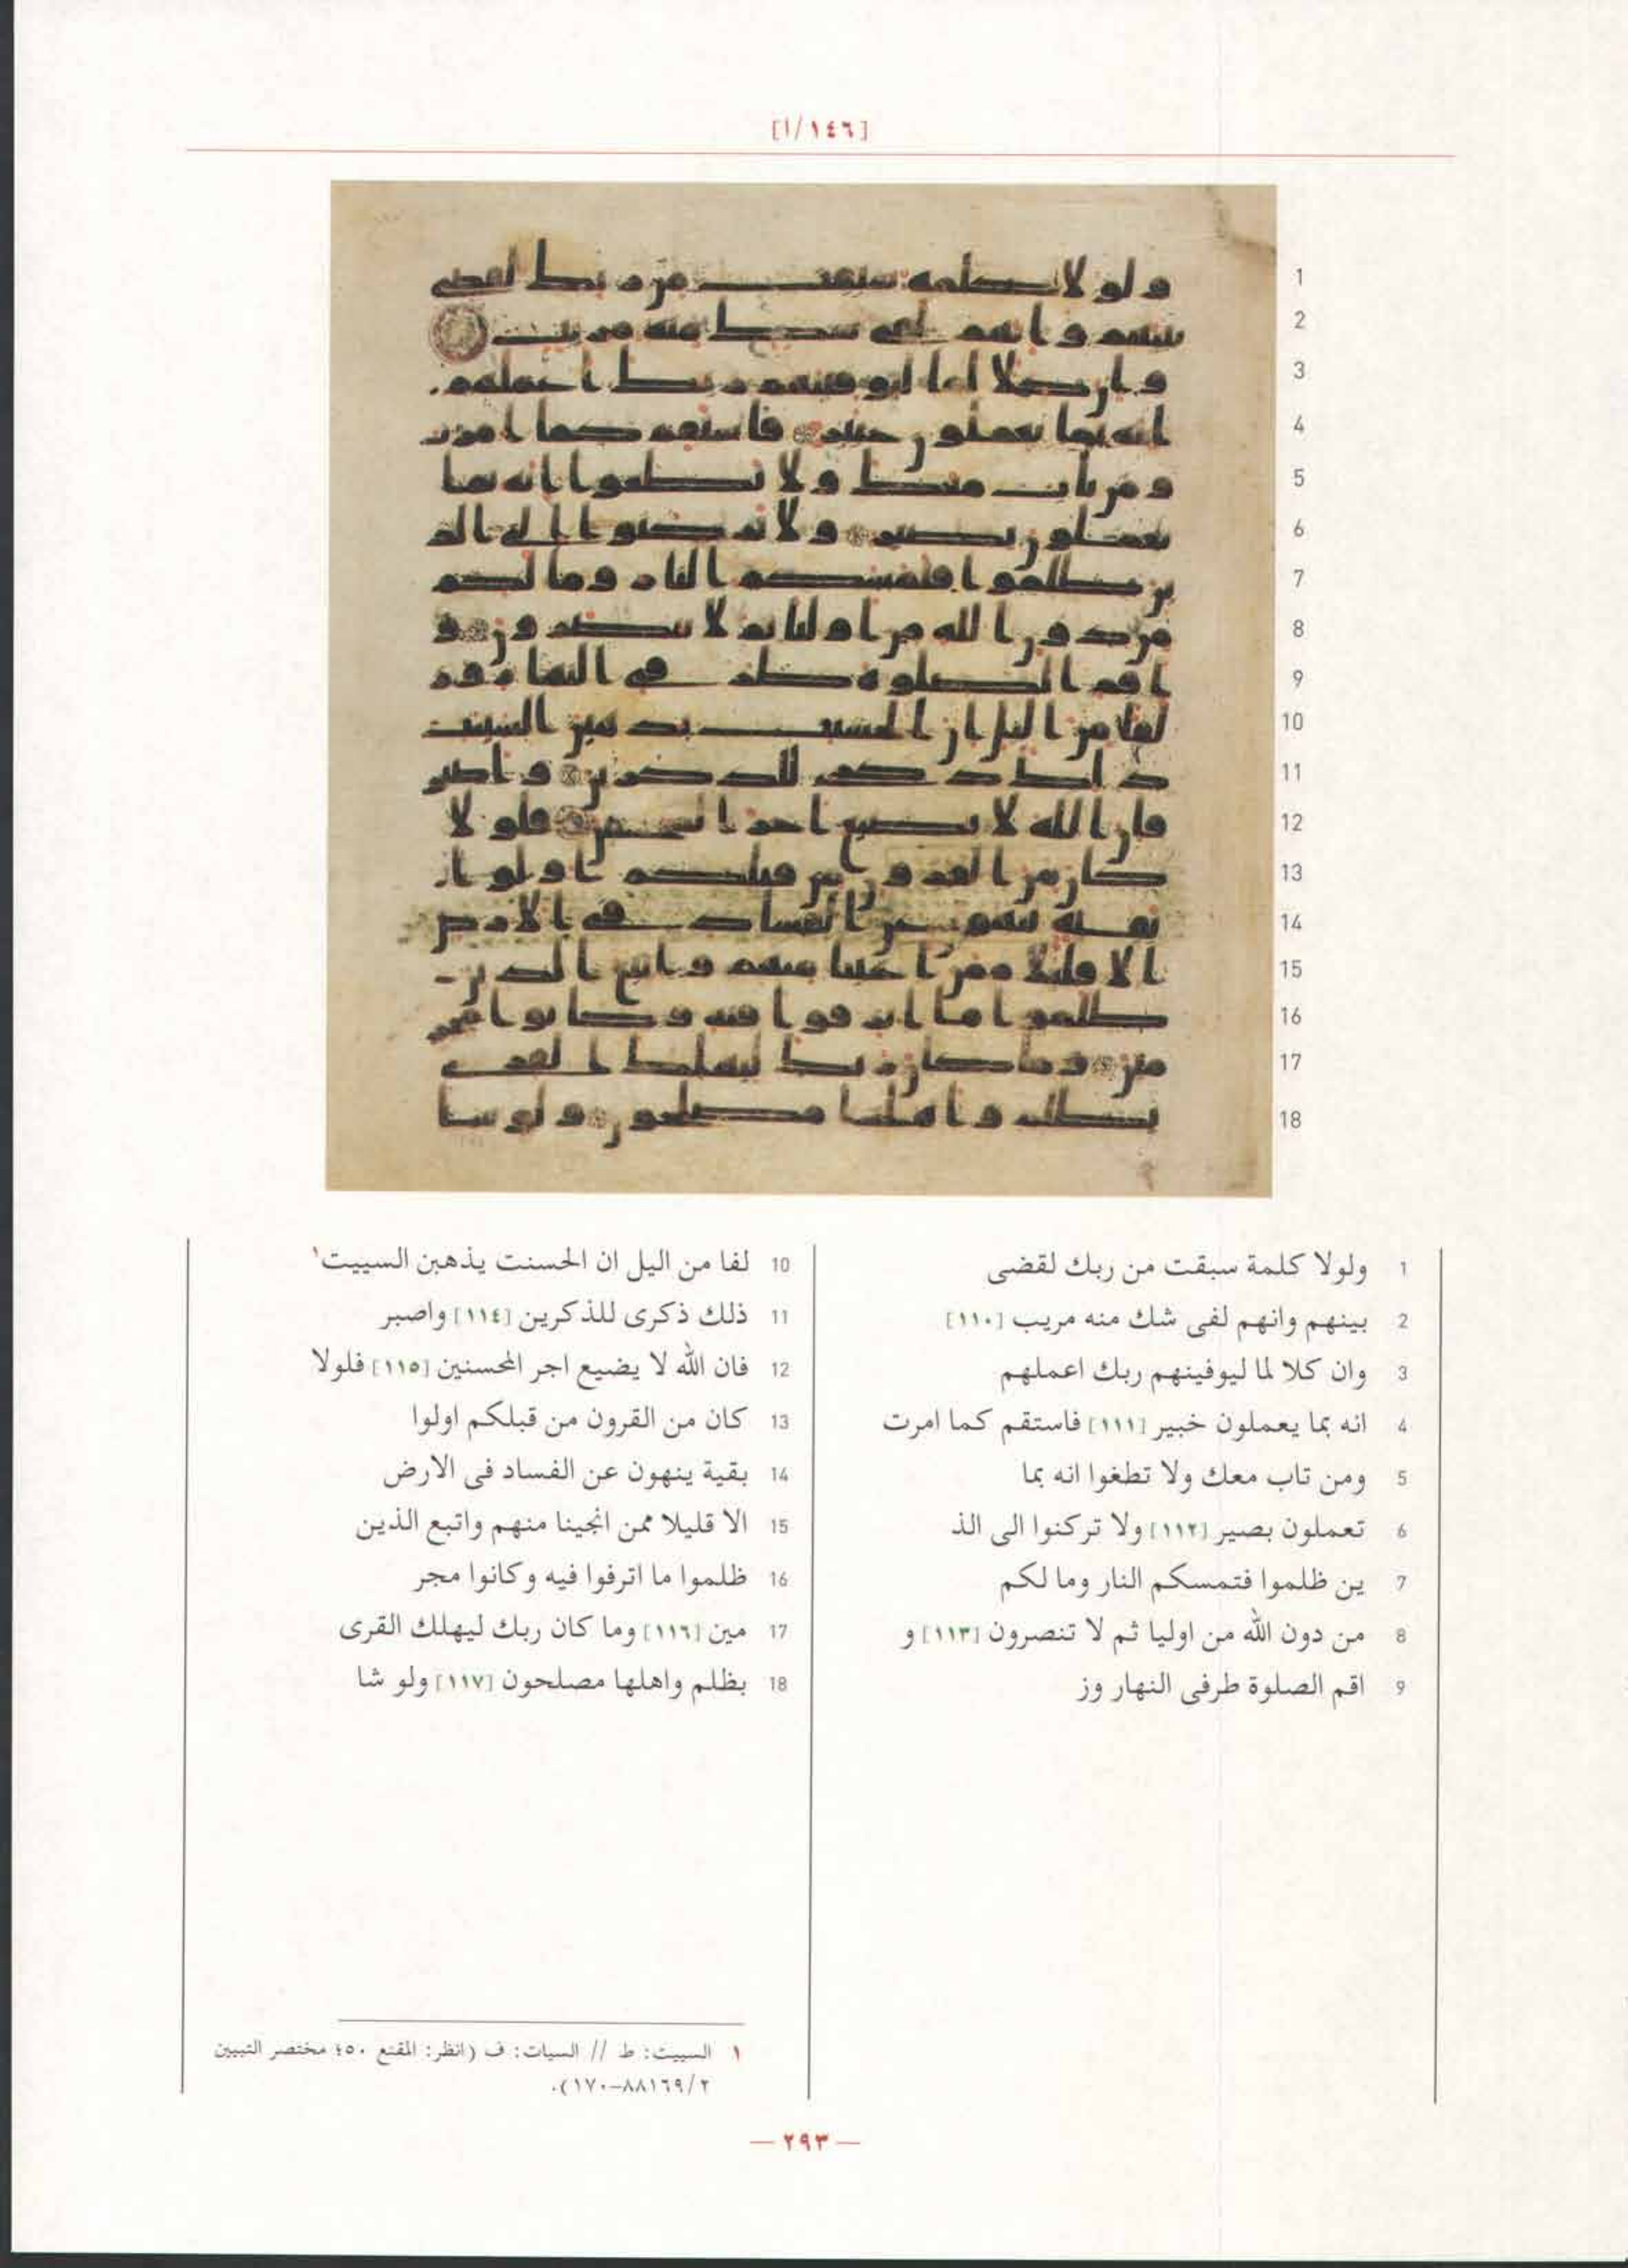 [١/١٤٦]
1 ولولا كلمة سبقت من ربك لقضى
2 بينهم وانهم لفى شك منه مريب [١١٠]
3 وان كلا لما ليوفينهم ربك اعملهم
4 انه بما يعملون خبير [١١١] فاستقم كما امرت
5 ومن تاب معك ولا تطغوا انه بما
6 تعملون بصير [١١٢] ولا تركنوا الى الذ
7 ين ظلموا فتمسكم النار وما لكم
8 من دون الله من اوليا ثم لا تنصرون [١١٣] و
9 اقم الصلوة طرفى النهار وز
10 لفا من اليل ان الحسنت يذهبن السييت١
11 ذلك ذكرى للذكرين [١١٤] واصبر
12 فان الله لا يضيع اجر المحسنين [١١٥] فلولا
13 كان من القرون من قبلكم اولوا
14 بقية ينهون عن الفساد فى الارض
15 الا قليلا ممن انجينا منهم واتبع الذين
16 ظلموا ما اترفوا فيه وكانوا مجر
17 مين [١١٦] وما كان ربك ليهلك القرى
18 بظلم واهلها مصلحون [١١٧] ولو شا
١ السييت: ط // السيات: ف (انظر: المقنع ٤٥٠ مختصر التبيين
٢/٨٨١٦٩–١٧٠).
— ٢٩٣ —